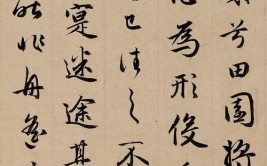 來兮田園將
心為形役
已往之不
寔迷途其
昨非舟遙